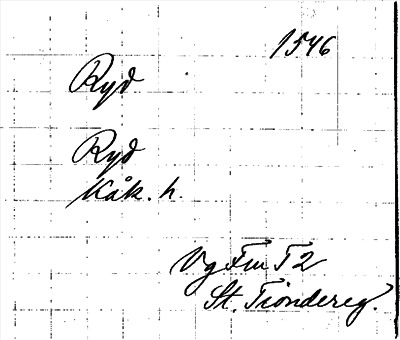 1546
Ryd
Ryd
Kåk. h.
Vg Fm T 2
St. Tiondereg.